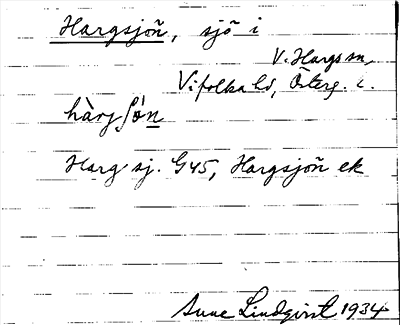 Hargsjöñ, sjö i
V. Hargs sn,
Vifolka hd, Österg. l.
hàrjʃø̀n
Harg sj. G45, Hargsjöñ ek
Sune Lindqvist 1934